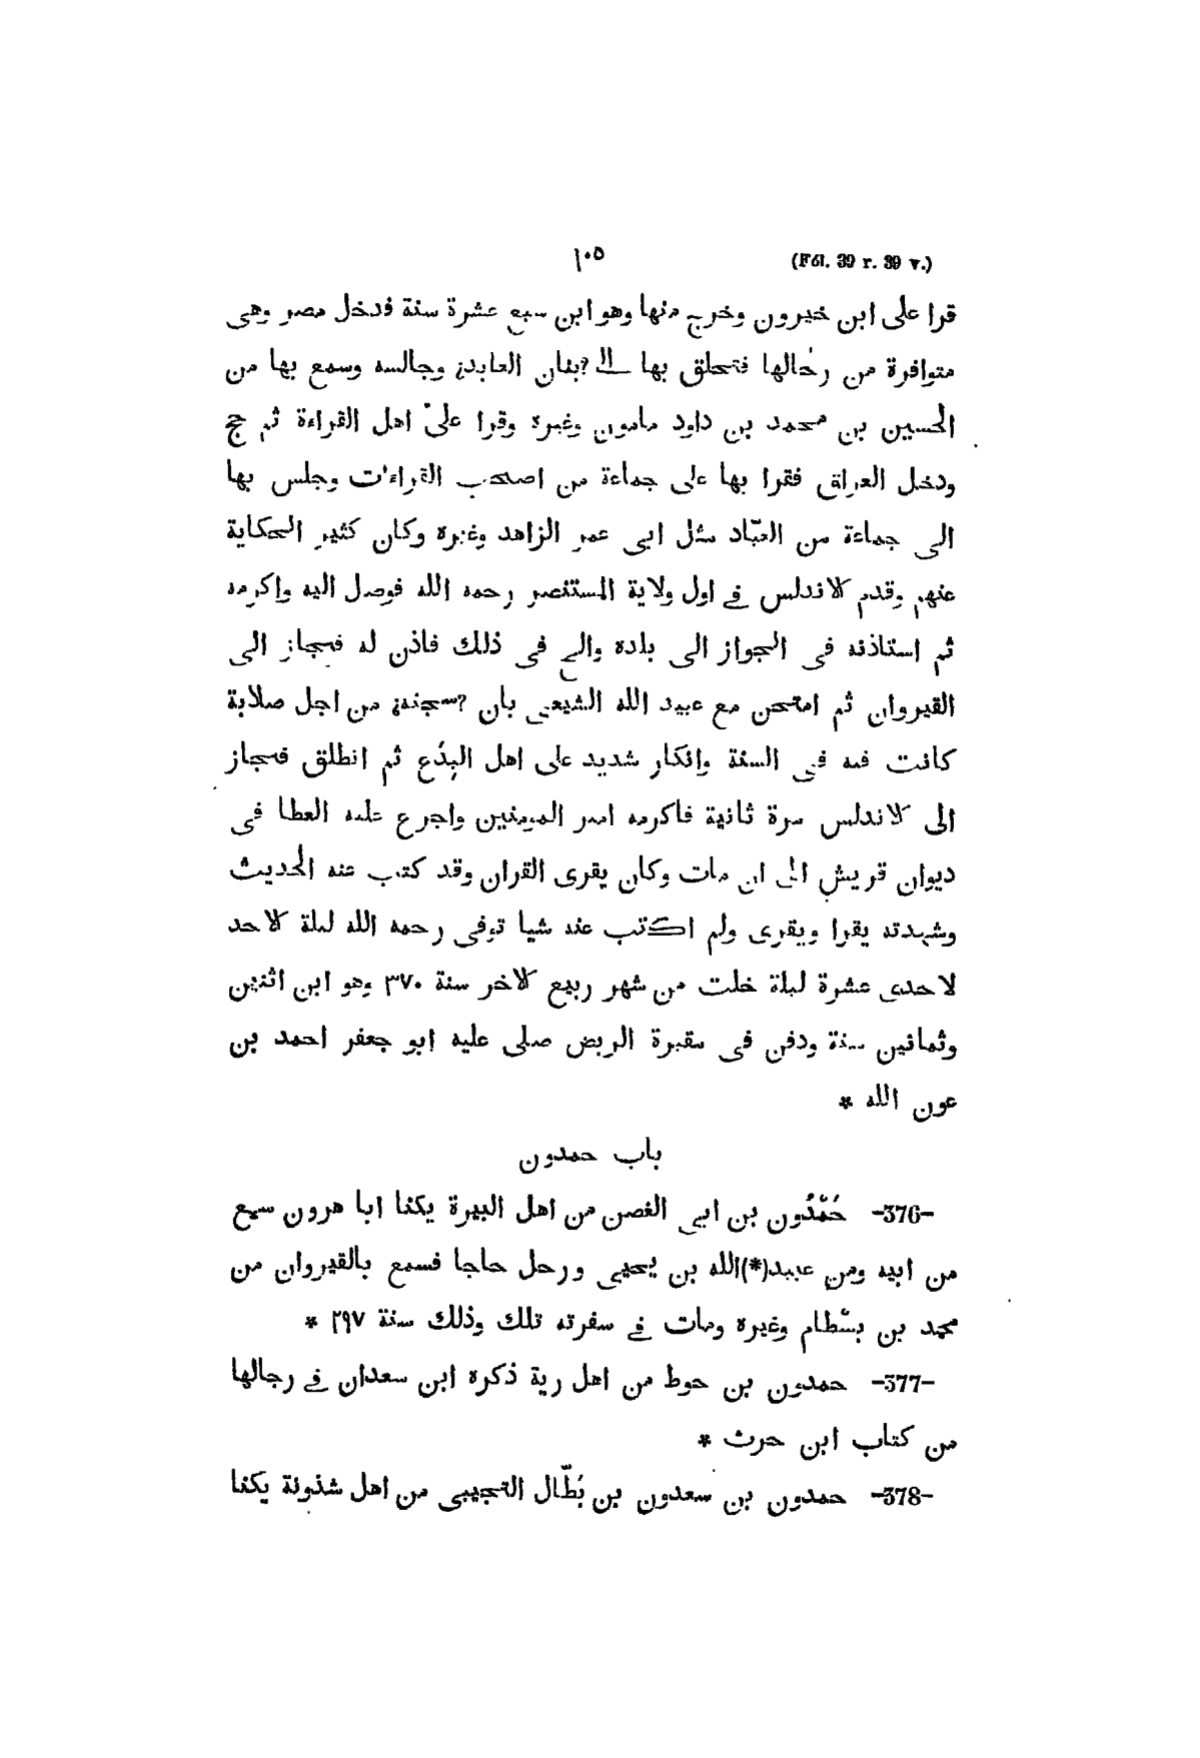 ١٠٥ (Fól. 39 r. 39 v.)
قرا على ابن خيرون وخرج منها وهو ابن سبع عشرة سنة فدخل مصر وهى
متوافرة من رجالها فتحلق بها العابد وجالسه وسمع بها من
الحسين بن محمد بن داود مامون وغيره وقرا على اهل القراءة ثم حج
ودخل العراق فقرا بها على جماعة من اصحب القراءت وجلس بها
الى جماعة من العبّاد مثل ابى عمر الزاهد وغيره وكان كثير الحكاية
عنهم وقدم الاندلس فى اول ولاية المستنصر رحمه الله فوصل اليه واكرمه
ثم استاذنه فى الجواز الى بلده والح فى ذلك فاذن له فجاز الى
القيروان ثم امتحن مع عبيد الله الشيعى بان من اجل صلابة
كانت فيه فى السنة وانكار شديد على اهل البِدَع ثم انطلق فجاز
الى الاندلس مرة ثانية فاكرمه امير المومنين واجرع عليه العطا فى
ديوان قريش الى ان مات وكان يقرى القران وقد كتب عنه الحديث
وشهدته يقرا ويقرى ولم اكتب عنه شيا توفى رحمه الله ليلة الاحد
لاحدى عشرة ليلة خلت من شهر ربيع الاخر سنة ٣٧٠ وهو ابن اثنين
وثمانين سنة ودفن فى مقبرة الربض صلى عليه ابو جعفر احمد بن
عون الله *
باب حمدون
-376- حَمْدُون بن ابى الغصن من اهل البيرة يكنا ابا هرون سمع
من ابيه ومن عبيد(*)الله بن يحيى ورحل حاجا فسمع بالقيروان من
محمد بن بسْطام وغيره ومات فى سفرته تلك وذلك سنة ٢٩٧ *
-377- حمدون بن حوط من اهل رية ذكره ابن سعدان فى رجالها
من كتاب ابن حرث *
-378- حمدون بن سعدون بن بَطّال التجيبى من اهل شذونة يكنا